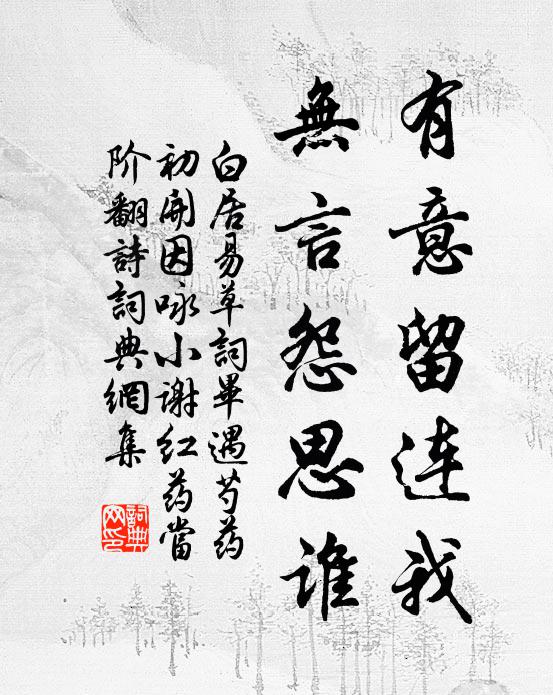 有意留连我
無言怨思谁
白居易草詞畢遇芍药
初開因咏小谢红药當
阶翻詩詞典網集
詞典
网印